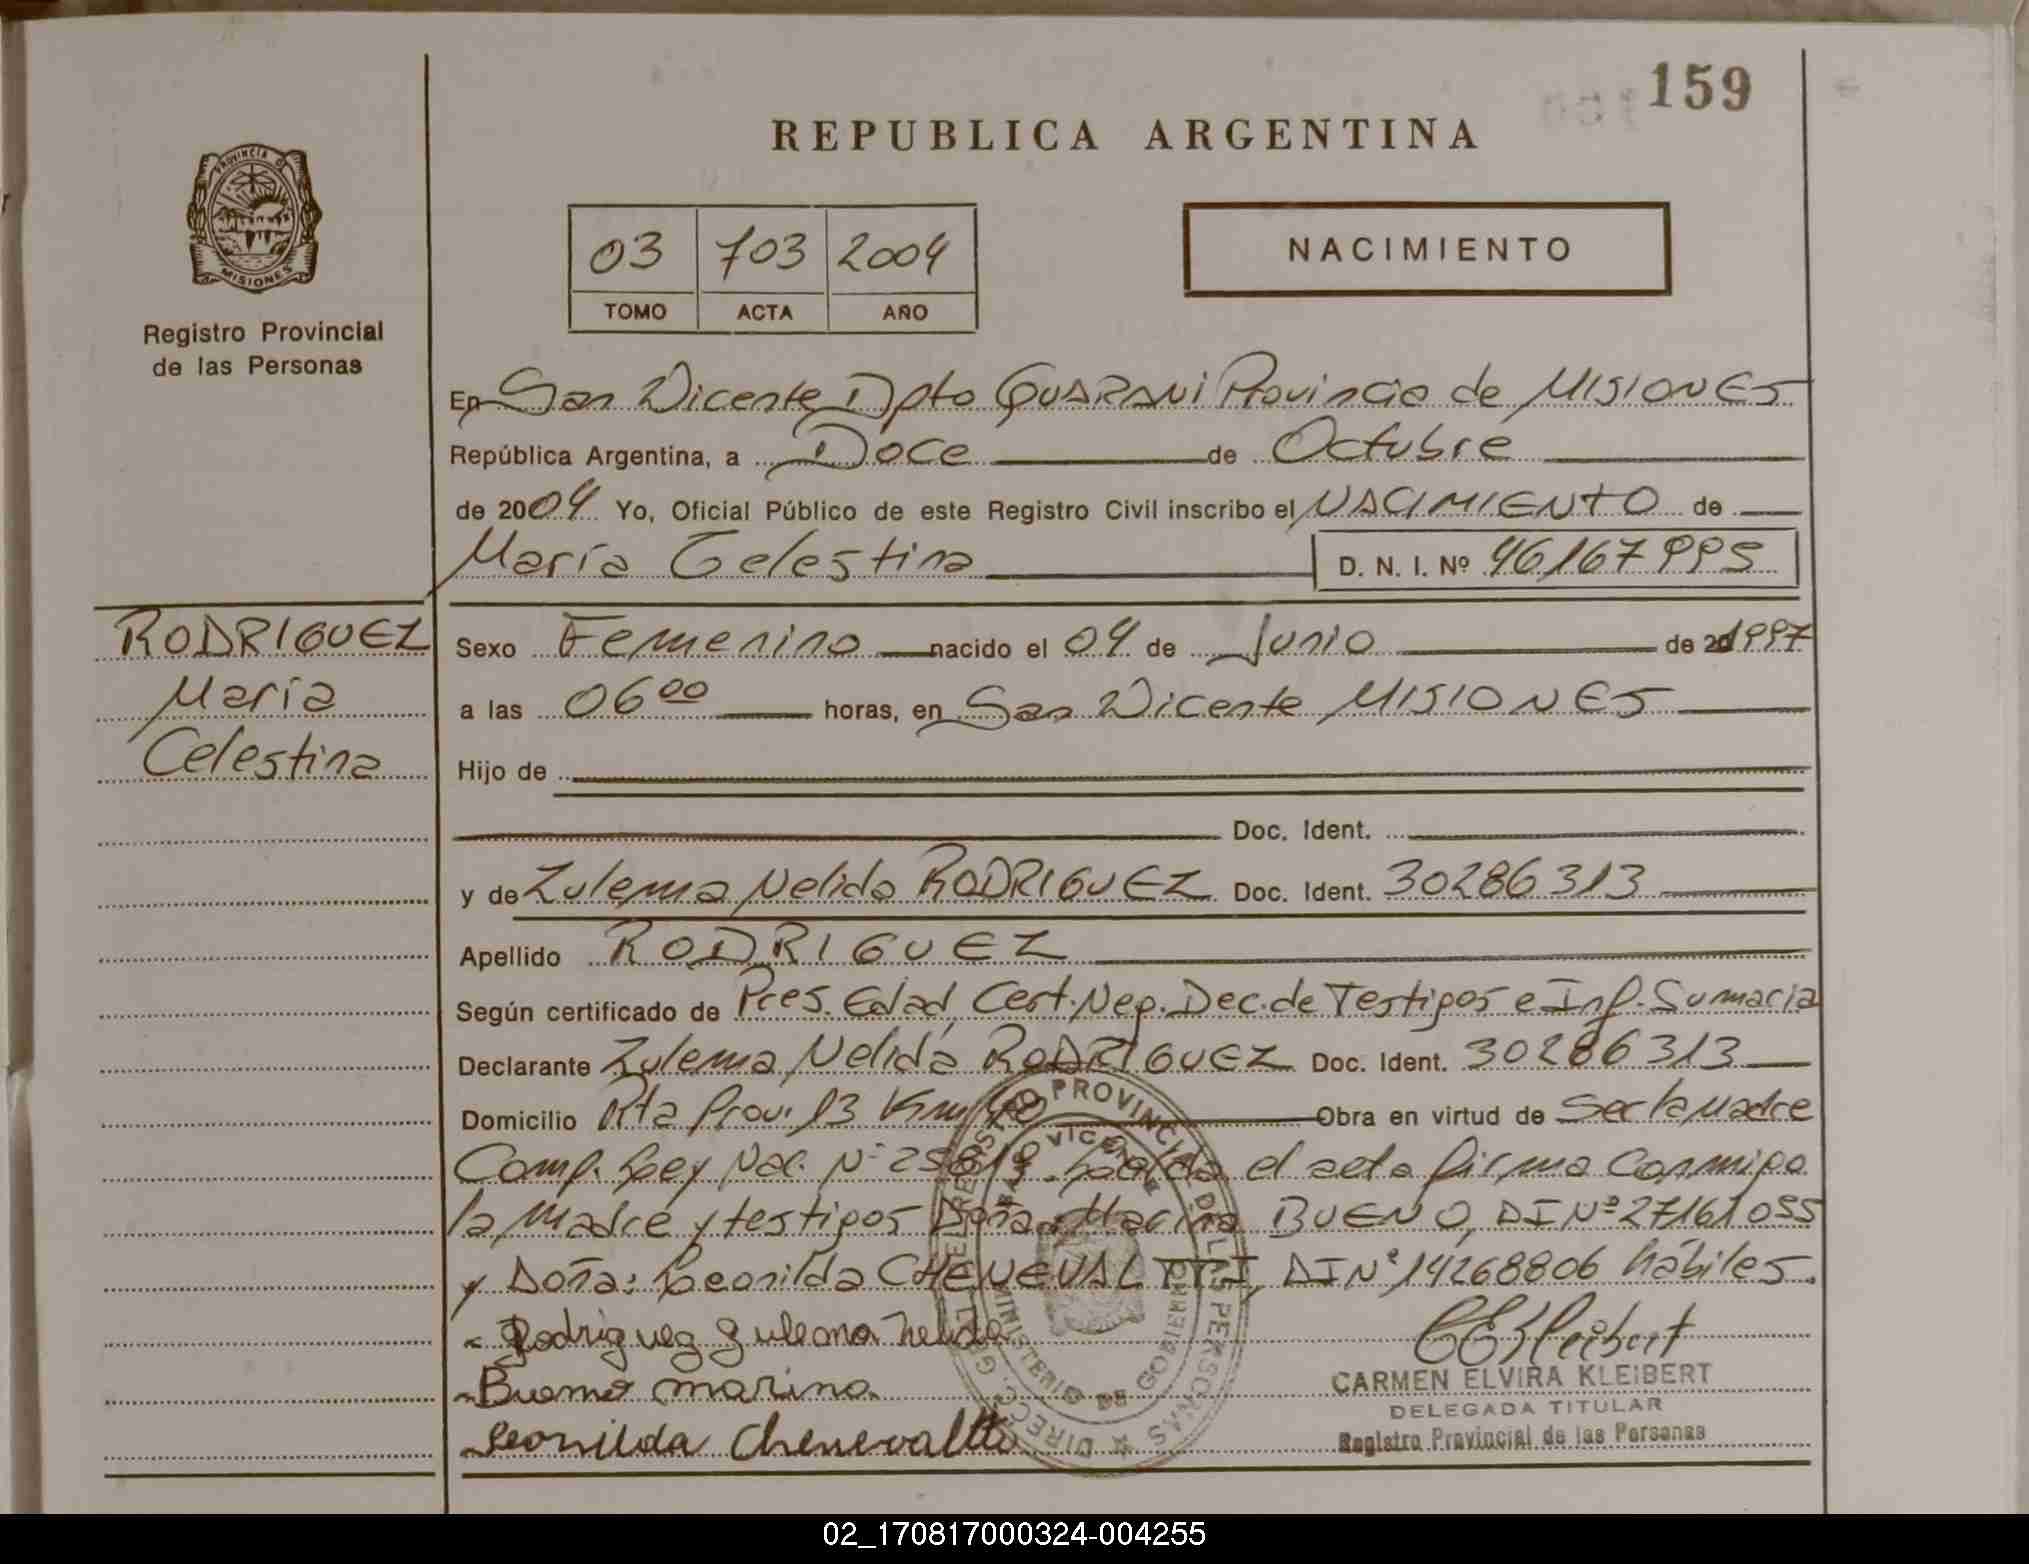 159
REPUBLICA ARGENTINA
PROVINCIA D
MISIONES
Registro Provincial
de las Personas
03 703 2004
TOMO ACTA AÑO
NACIMIENTO
En San Vicente Dpto GUARANI Provincia de MISIONES
República Argentina, a Doce de Octubre
de 2004 Yo, Oficial Público de este Registro Civil inscribo el NACIMIENTO de
María Celestina D. N. I. Nº 46167995
RODRIGUEZ
María
Celestina
Sexo Femenino nacido el 04 de Junio de 20 1997
a las 06 00 horas, en San Vicente MISIONES
Hijo de
Doc. Ident.
y de Zulema Nelida RODRIGUEZ Doc. Ident. 30286313
Apellido RODRIGUEZ
Según certificado de Pres. Edad, Cert. Neg. Dec. de Testigos e Inf. Sumaria
Declarante Zulema Nelida RODRIGUEZ Doc. Ident. 30286313
Domicilio Rta Prov. 13 Km Obra en virtud de Sec la Madre
Comp. Ley Nac. Nº 25819. Leída el acta firma Conmigo
la Madre y testigos Doña: Marina BUENO, DI Nº 27161055
y Doña: Leonilda CHENEVALTTI, DI Nº 14268806 hábiles.
Rodriguez Zulema nelida
Bueno marina
Leonilda Chenevaltti
CEKleibert
CARMEN ELVIRA KLEIBERT
DELEGADA TITULAR
Registro Provincial de las Personas
DIRECC. GRAL. DEL REGISTRO PROVINCIAL DE LAS PERSONAS
SAN VICENTE
MINISTERIO DE GOBIERNO
02_170817000324-004255